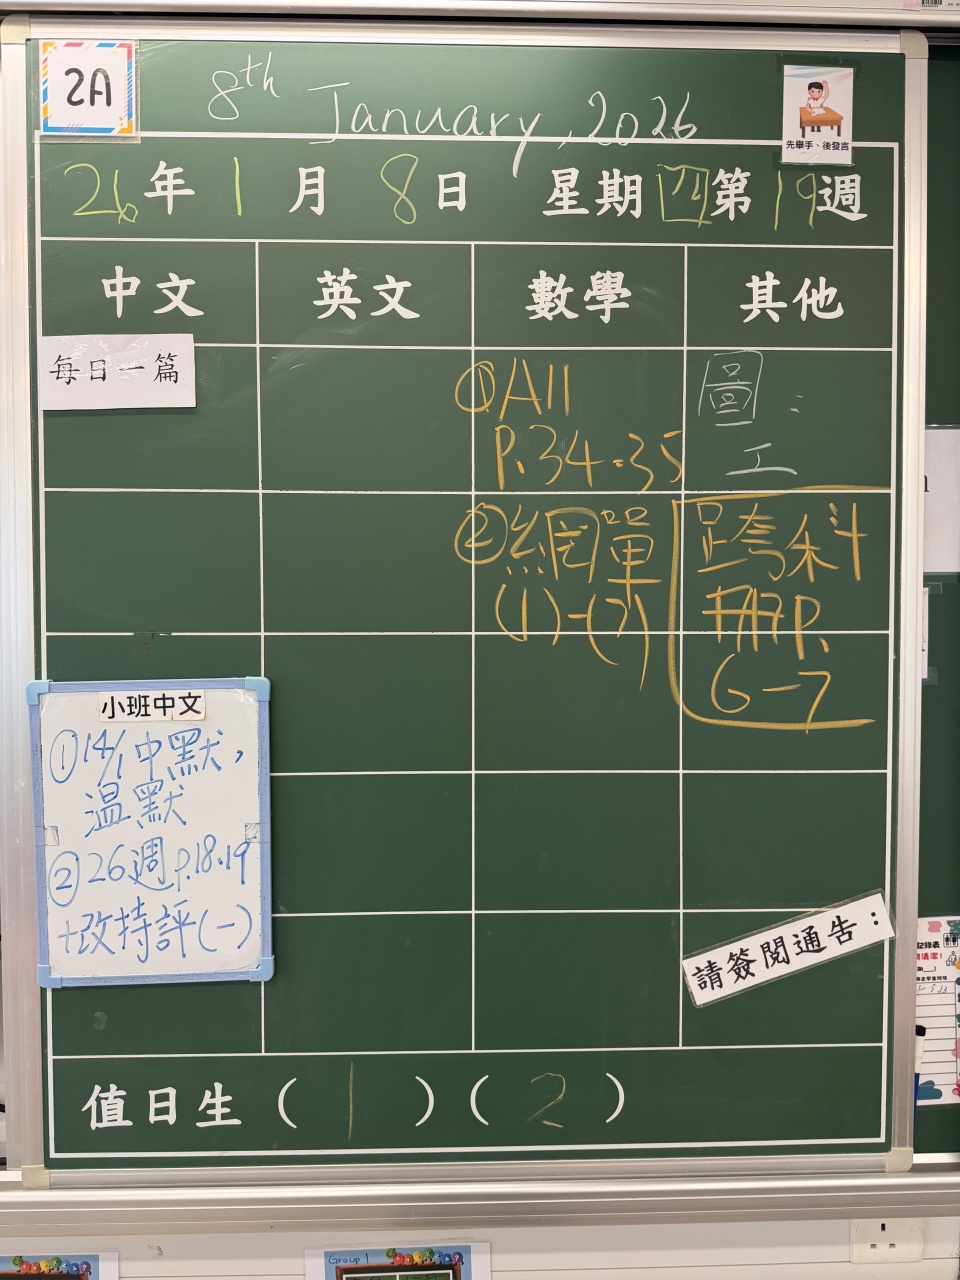 2A
8th January, 2026
先舉手、後發言
26年1月8日 星期四第19週
中文 英文 數學 其他
每日一篇
①A11
P.34-35
②網單
(1)-(7)
圖:
工
跨科
P.
6-7
小班中文
①14/1中默,
溫默
②26週P.18,19
+改持評(一)
請簽閱通告:
值日生(1)(2)
Group 1